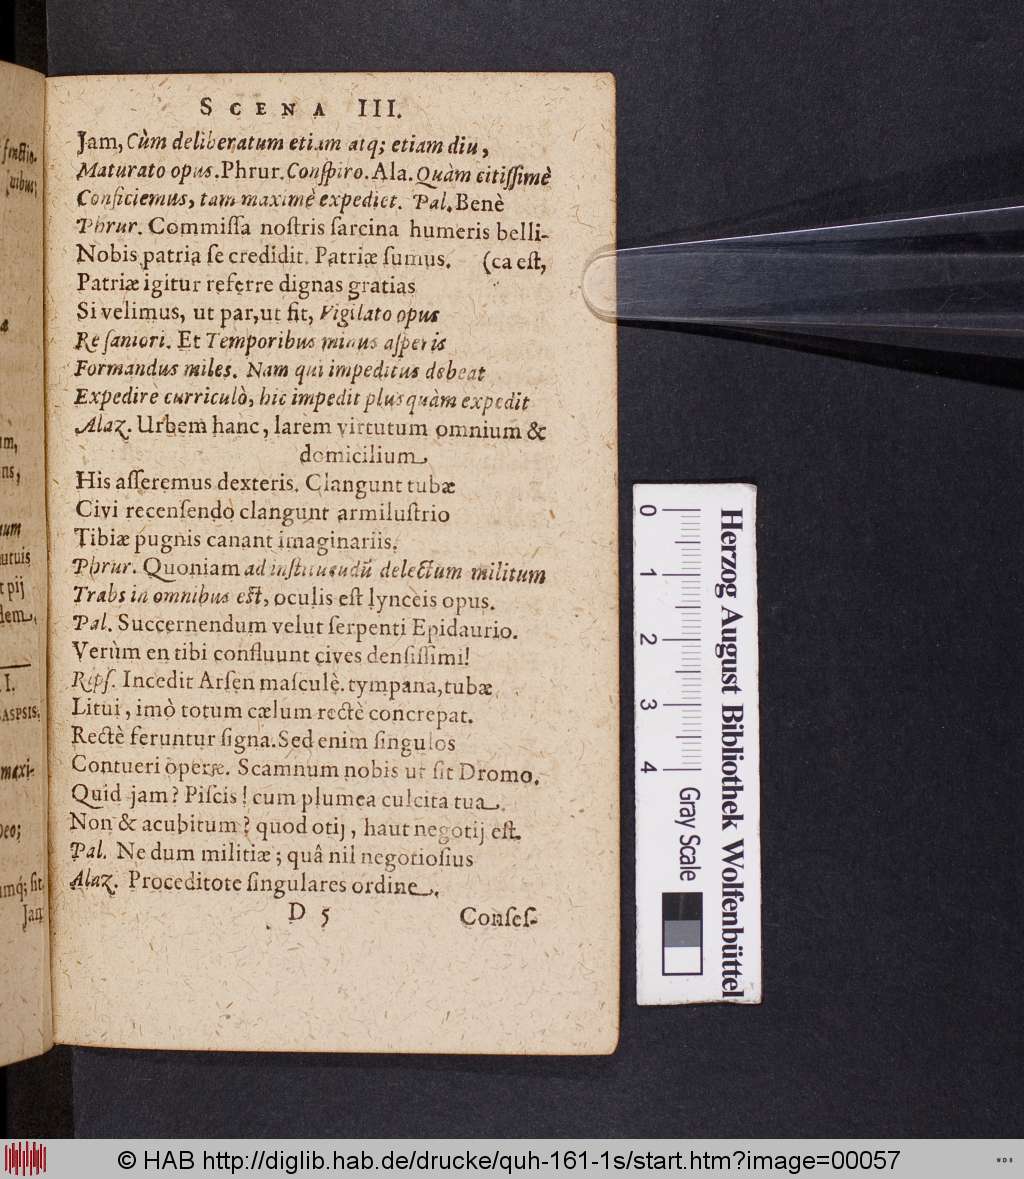 SCENA III.
Jam, Cùm deliberatum etiam atq; etiam diu,
Maturato opus. Phrur. Conspiro. Ala. Quàm citissimè
Conficiemus, tam maximè expediet. Pal. Benè
Phrur. Commissa nostris sarcina humeris belli-
Nobis patria se credidit. Patriæ sumus. (ca est,
Patriæ igitur referre dignas gratias
Si velimus, ut par, ut fit, Vigilato opus
Re saniori. Et Temporibus minus asperis
Formandus miles. Nam qui impeditus debeat
Expedire curriculò, hic impedit plus quàm expedit
Alaz. Urbem hanc, larem virtutum omnium &
domicilium
His asseremus dexteris. Clangunt tubæ
Civi recensendo clangunt armilustrio
Tibiæ pugnis canant imaginariis.
Phrur. Quoniam ad instituendũ delectum militum
Trabs in omnibus est, oculis est lynceis opus.
Pal. Succernendum velut serpenti Epidaurio.
Verùm en tibi confluunt cives densissimi!
Rips. Incedit Arsen masculè. tympana, tubæ
Litui, imò totum cælum rectè concrepat.
Rectè feruntur signa. Sed enim singulos
Contueri operæ. Scamnum nobis ut sit Dromo.
Quid jam? Piscis! cum plumea culcita tua.
Non & acubitum? quod otij, haut negotij est.
Pal. Ne dum militiæ; quâ nil negotiosius
Alaz. Proceditote singulares ordine.
D 5 Conses-
senectio-
um,
ns,
num
utuis
t pij
dem,
I.
ASPSIS.
maxi-
Deo;
umq́; sit
Jam
0 1 2 3 4
Gray Scale
Herzog August Bibliothek Wolfenbüttel
© HAB http://diglib.hab.de/drucke/quh-161-1s/start.htm?image=00057